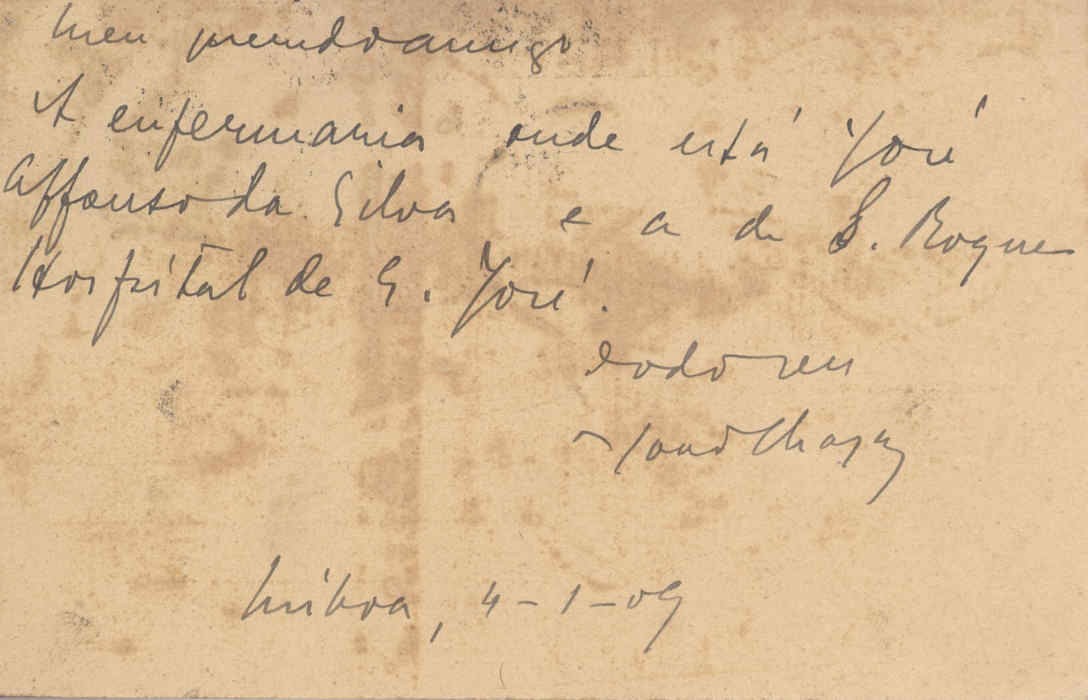 Meu prezado amigo
A enfermaria onde está José
Affonso da Silva e a de S. Roque
Hospital de S. José.
todo seu
João Chagas
Lisboa, 4-1-09